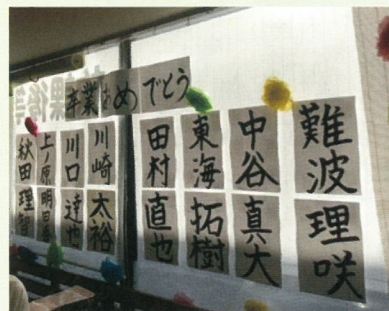 卒業おめでとう
難波理咲
中谷真大
東海拓樹
田村直也
川崎太裕
川口達也
上ノ原明日
秋田理智